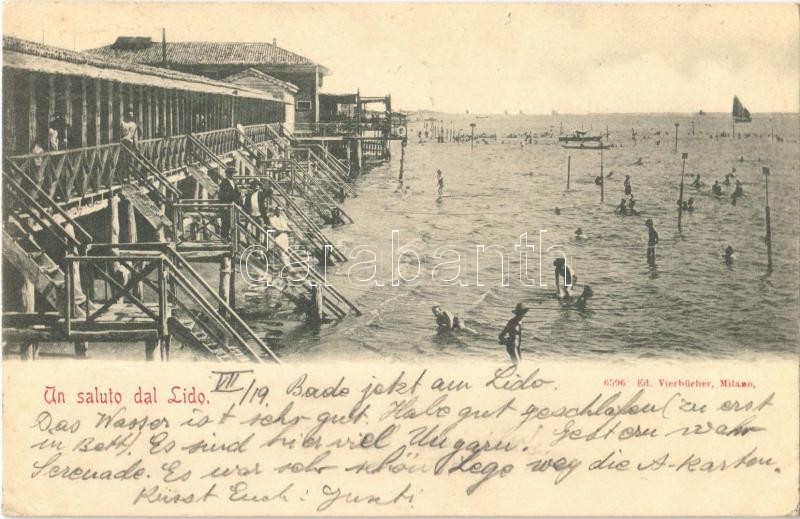 darabanth
Un saluto dal Lido.
6596 Ed. Vierbücher, Milano,
VII/19. Bade jetzt am Lido.
Das Wasser ist sehr gut. Habe gut geschlafen (zu erst
im Bett). Es sind hier viel Ungarn! Gestern war
Serenade. Es war sehr schön. Lege weg die A-karten.
Küsst Euch: